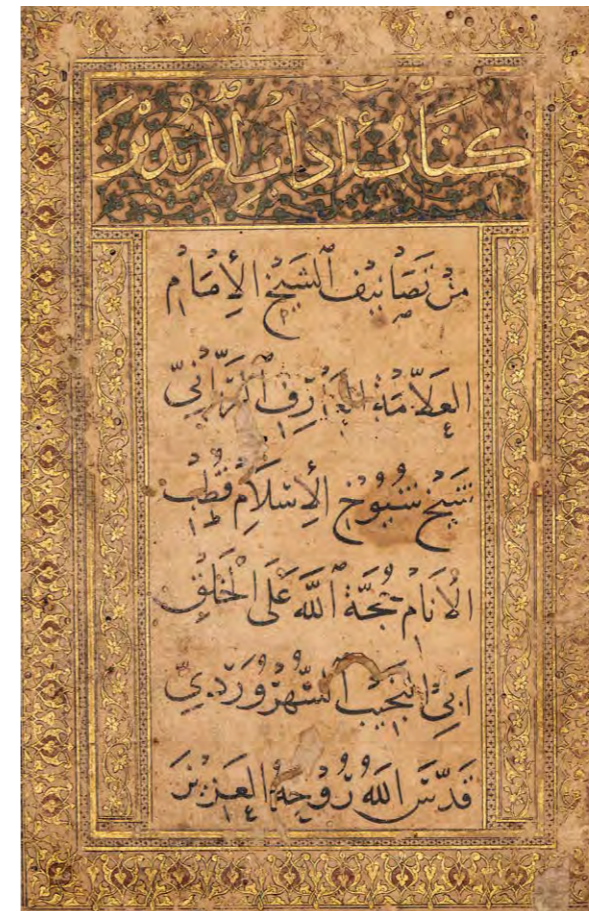 كتاب آداب المريدين
من تصانيف الشيخ الإمام
العلامة العارف الرباني
شيخ شيوخ الإسلام قطب
الأنام حجة الله على الخلق
أبي النجيب السهروردي
قدس الله روحه العزيز